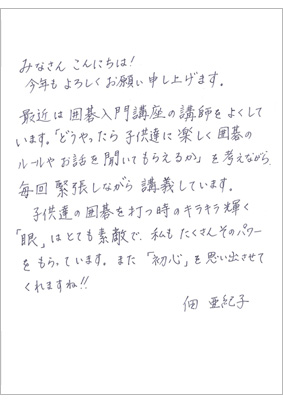 みなさん こんにちは!
今年もよろしくお願い申し上げます。
最近は囲碁入門講座の講師をよくして
います。「どうやったら子供達に楽しく囲碁の
ルールやお話を聞いてもらえるか」を考えながら
毎回緊張しながら講義しています。
子供達の囲碁を打つ時のキラキラ輝く
「眼」はとても素敵で、私もたくさんそのパワー
をもらっています。また「初心」を思い出させて
くれますね!!
佃 亜紀子